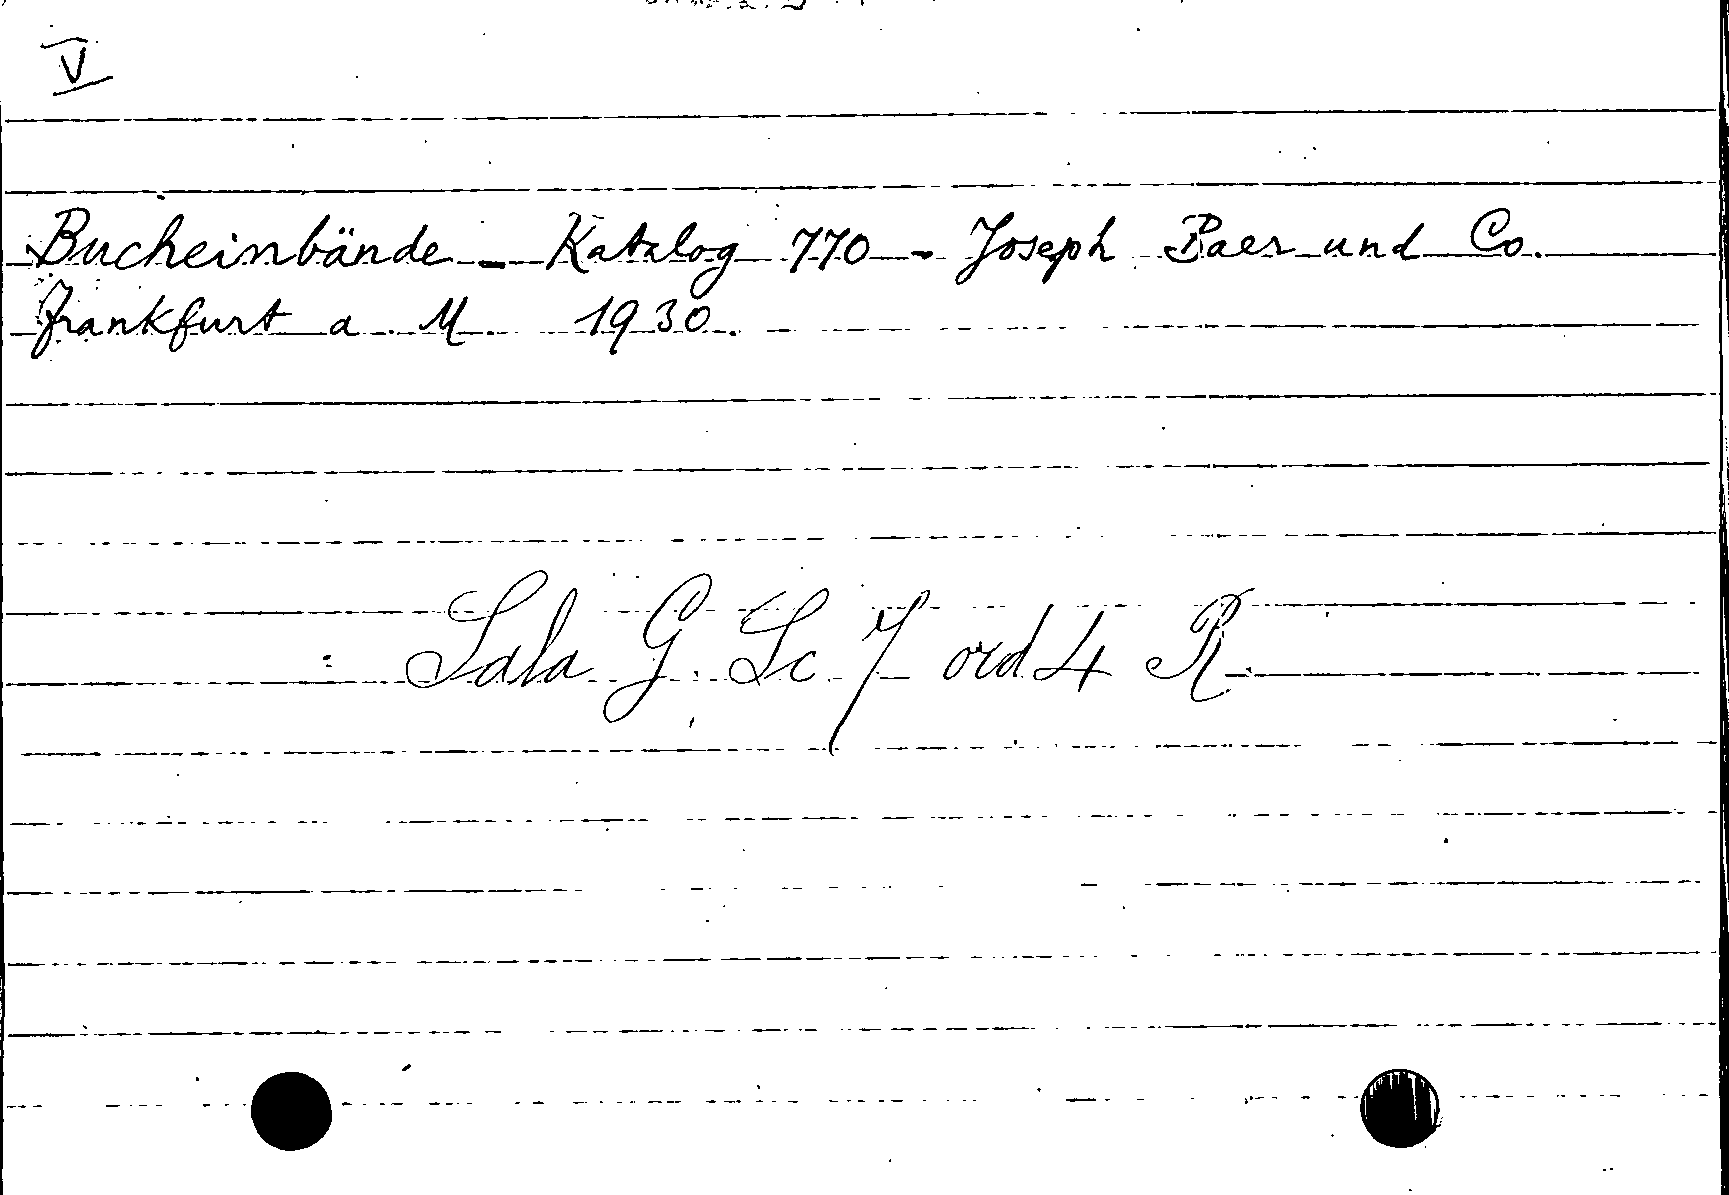 V
Bucheinbände - Katalog 770 - Joseph Baer und Co.
Frankfurt a. M. 1930.
Sala G. Sc 7 ord 4 R.